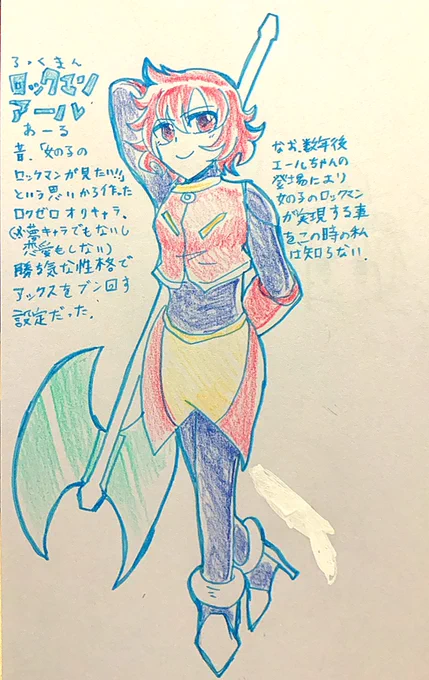 ろっくまん
ロックマン
アール
あーる
昔、「女の子の
ロックマンが見たい!!」
という思いから作った
ロクゼロオリキャラ。
(※夢キャラでもないし
恋愛もしない)
勝ち気な性格で
アックスをブン回す
設定だった。
なお、数年後
エールちゃんの
登場により
女の子のロックマン
が実現する事
をこの時の私
は知らない.